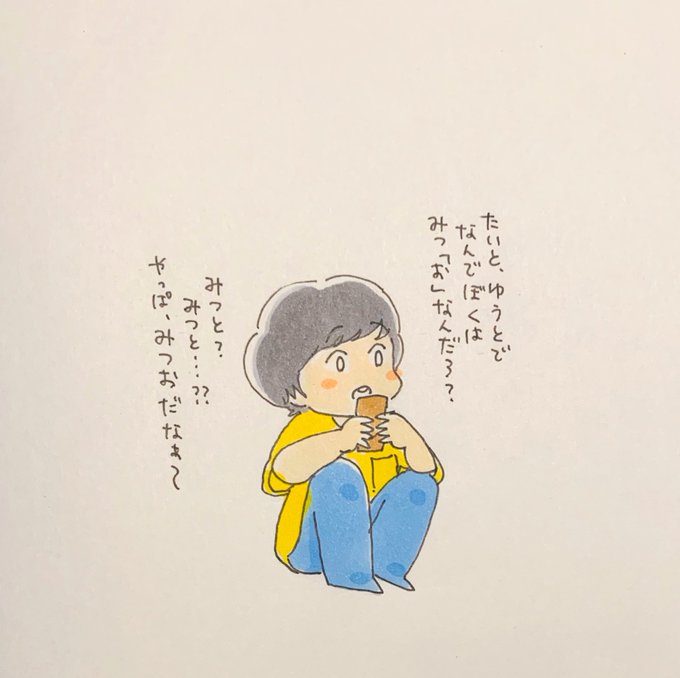 たいと、ゆうとで
なんでぼくは
みつ「お」なんだろ?
みつと?
みつと…??
やっぱ、みつおだなぁ〜